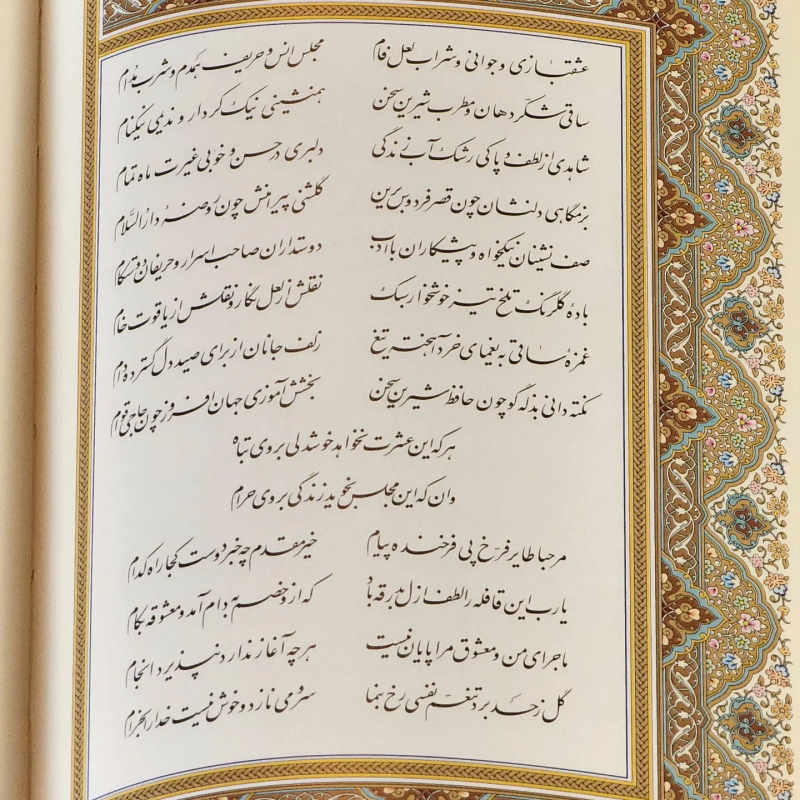 عشقبازی و جوانی و شراب لعل فام مجلس انس و حریف همدم و شرب مدام
ساقی شکر دهان و مطرب شیرین سخن همنشینی نیک کردار و ندیمی نیکنام
شاهدی از لطف و پاکی رشک آب زندگی دلبری در حسن و خوبی غیرت ماه تمام
بزمگاهی دلنشان چون قصر فردوس برین گلشنی پیرامنش چون روضهٔ دارالسلام
صف نشینان نیکخواه و پیشکاران باادب دوستداران صاحب اسرار و حریفان دوستکام
بادهٔ گلرنگ تلخ تیز خوشخوار سبک نقلش از لعل نگار و نقلش از یاقوت خام
غمزهٔ ساقی به یغمای خرد آهخته تیغ زلف جانان از برای صید دل گسترده دام
نکته دانی بذله گو چون حافظ شیرین سخن بخشش آموزی جهان افروز چون حاجی قوام
هر که این عشرت نخواهد خوشدلی بر وی تباه
وان که این مجلس نجوید زندگی بر وی حرام
مرحبا طایر فرخ پی فرخنده پیام خیر مقدم چه خبر دوست کجا راه کدام
یارب این قافله را لطف ازل بدرقه باد که ازو خصم به دام آمد و معشوقه بکام
ماجرای من و معشوق مرا پایان نیست هر چه آغاز ندارد نپذیرد انجام
گل ز حد برد تنعم نفسی رخ بنما سرو می نازد و خوش نیست خدا را بخرام